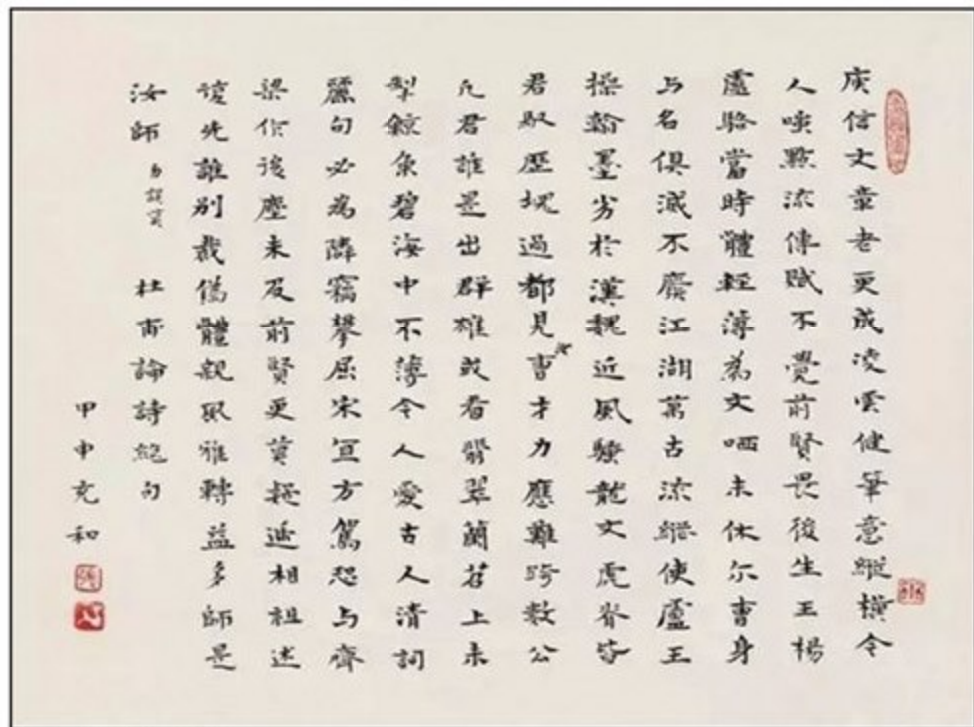 庾信文章老更成凌雲健筆意縱橫今
人嗤點流傳賦不覺前賢畏後生王楊
盧駱當時體輕薄為文哂未休尔曹身
与名俱滅不廢江湖萬古流縱使盧王
操翰墨劣於漢魏近風騷龍文虎脊皆
君馭歷塊過都見尔曹才力應難跨數公
凡君誰是出群雄或看翡翠蘭苕上未
掣鯨魚碧海中不薄今人愛古人清詞
麗句必為隣竊攀屈宋宜方駕恐与齊
梁作後塵未及前賢更莫疑遞相祖述
復先誰別裁偽體親風雅轉益多師是
汝師 杜甫論詩絕句
甲申充和